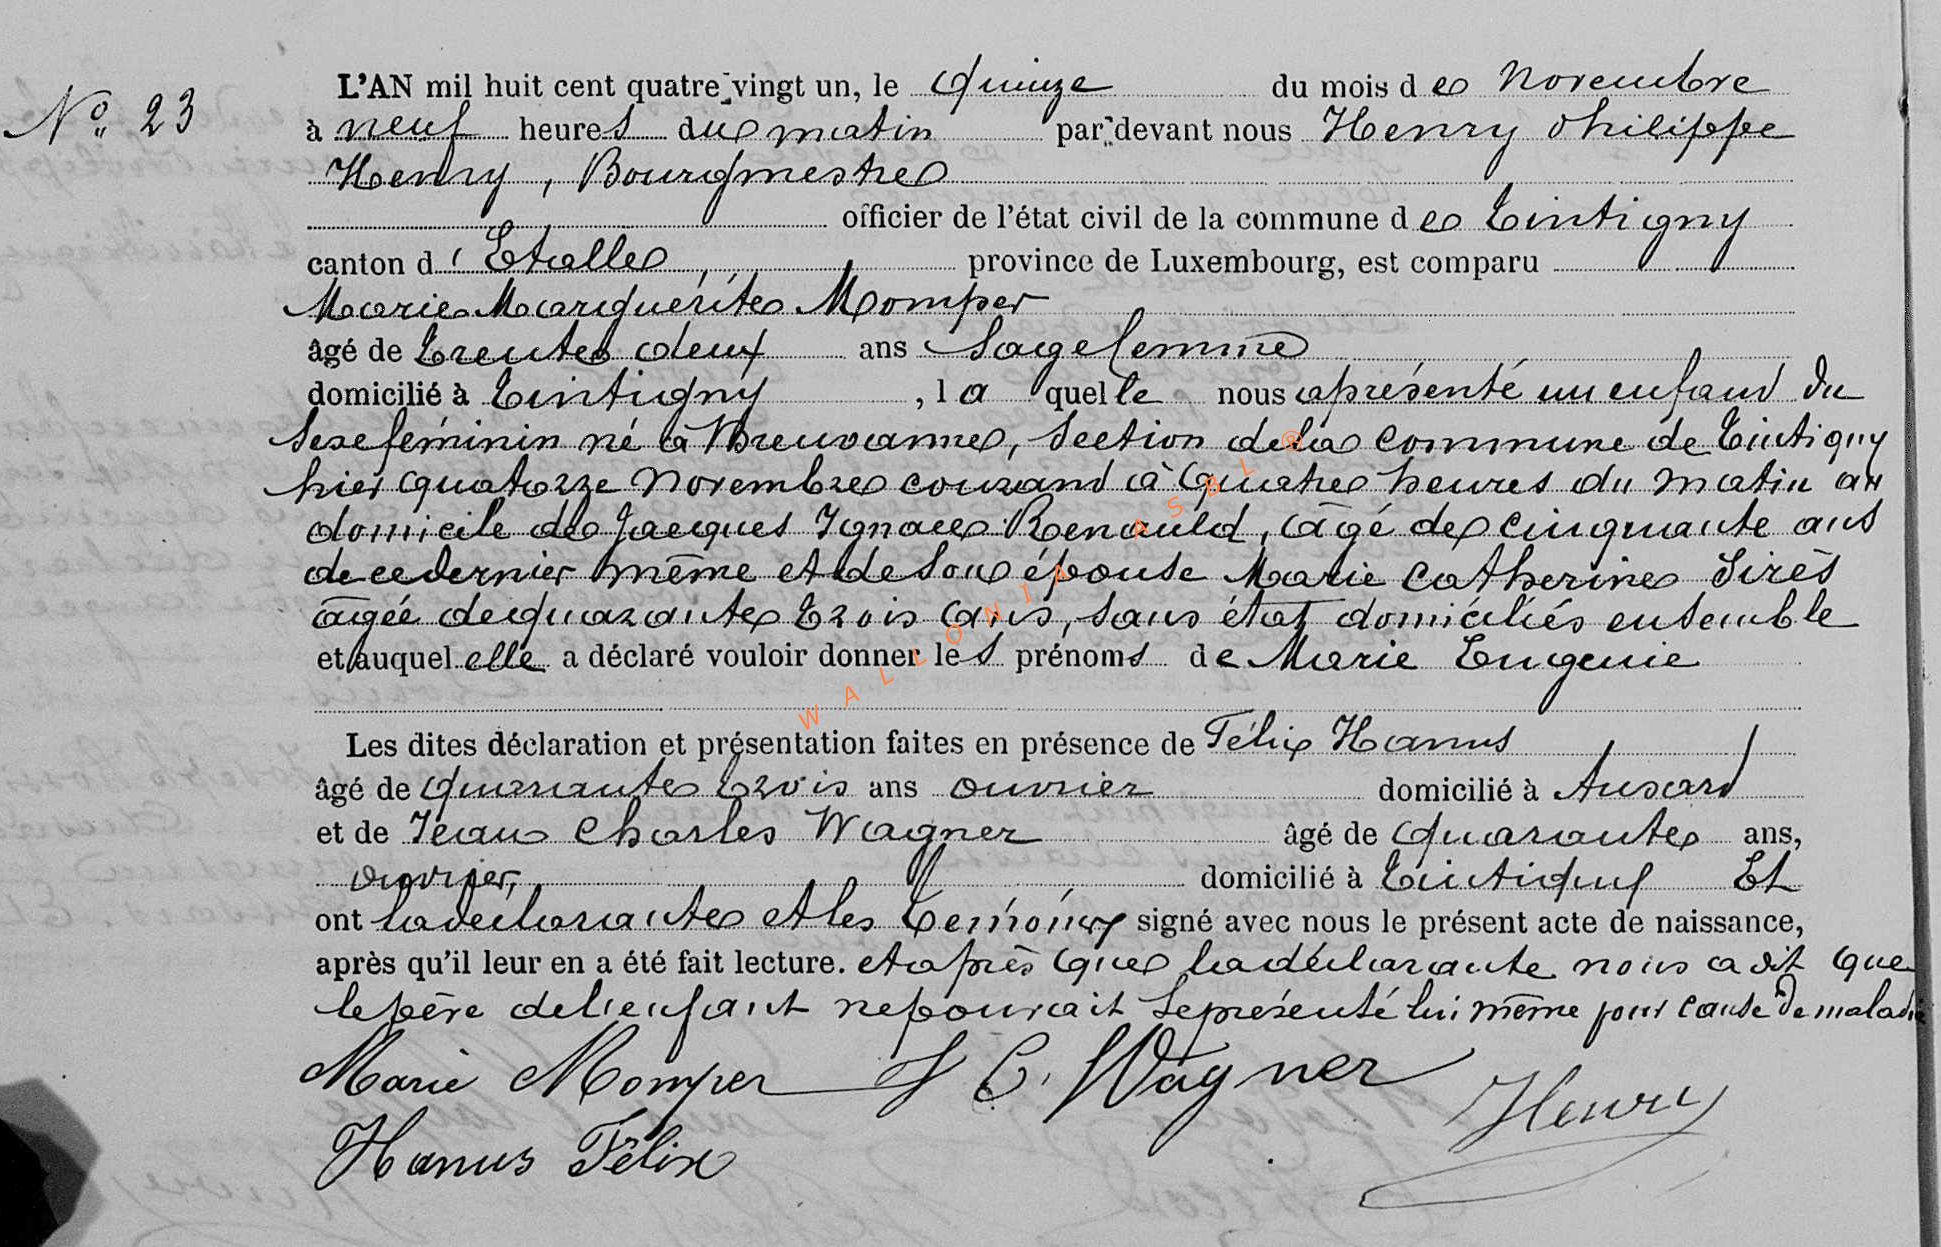 N° 23
L'AN mil huit cent quatre-vingt un, le quinze du mois de novembre
à neuf heures du matin par-devant nous Henry Philippe
Henry, Bourgmestre
officier de l'état civil de la commune de Tintigny
canton d' Etalle, province de Luxembourg, est comparu
Marie Marguérite Momper
âgé de trente deux ans Sage femme
domicilié à Tintigny, la quelle nous a présenté un enfant du
Sexe féminin né à Breuvanne, Section de la commune de Tintigny
hier quatorze novembre courand à quatre heures du matin au
domicile de Jacques Ignace Renauld, âgé de cinquante ans
de ce dernier même et de Son épouse Marie Catherine Sirès
âgée de quarante trois ans, sans état domiciliés ensemble
et auquel elle a déclaré vouloir donner les prénoms de Marie Eugenie
Les dites déclaration et présentation faites en présence de Félix Hanus
âgé de quarante trois ans ouvrier domicilié à Ansard
et de Jean Charles Wagner âgé de quarante ans,
ouvrier, domicilié à Tintigny Et
ont la déclarante et les témoins signé avec nous le présent acte de naissance,
après qu'il leur en a été fait lecture. et après que la déclarante nous a dit que
le père de l'enfant ne pourrait Se présenté lui même pour cause de maladie
Marie Momper J C. Wagner
Henry
Hanus Félix
WALLONIA ASBL ®